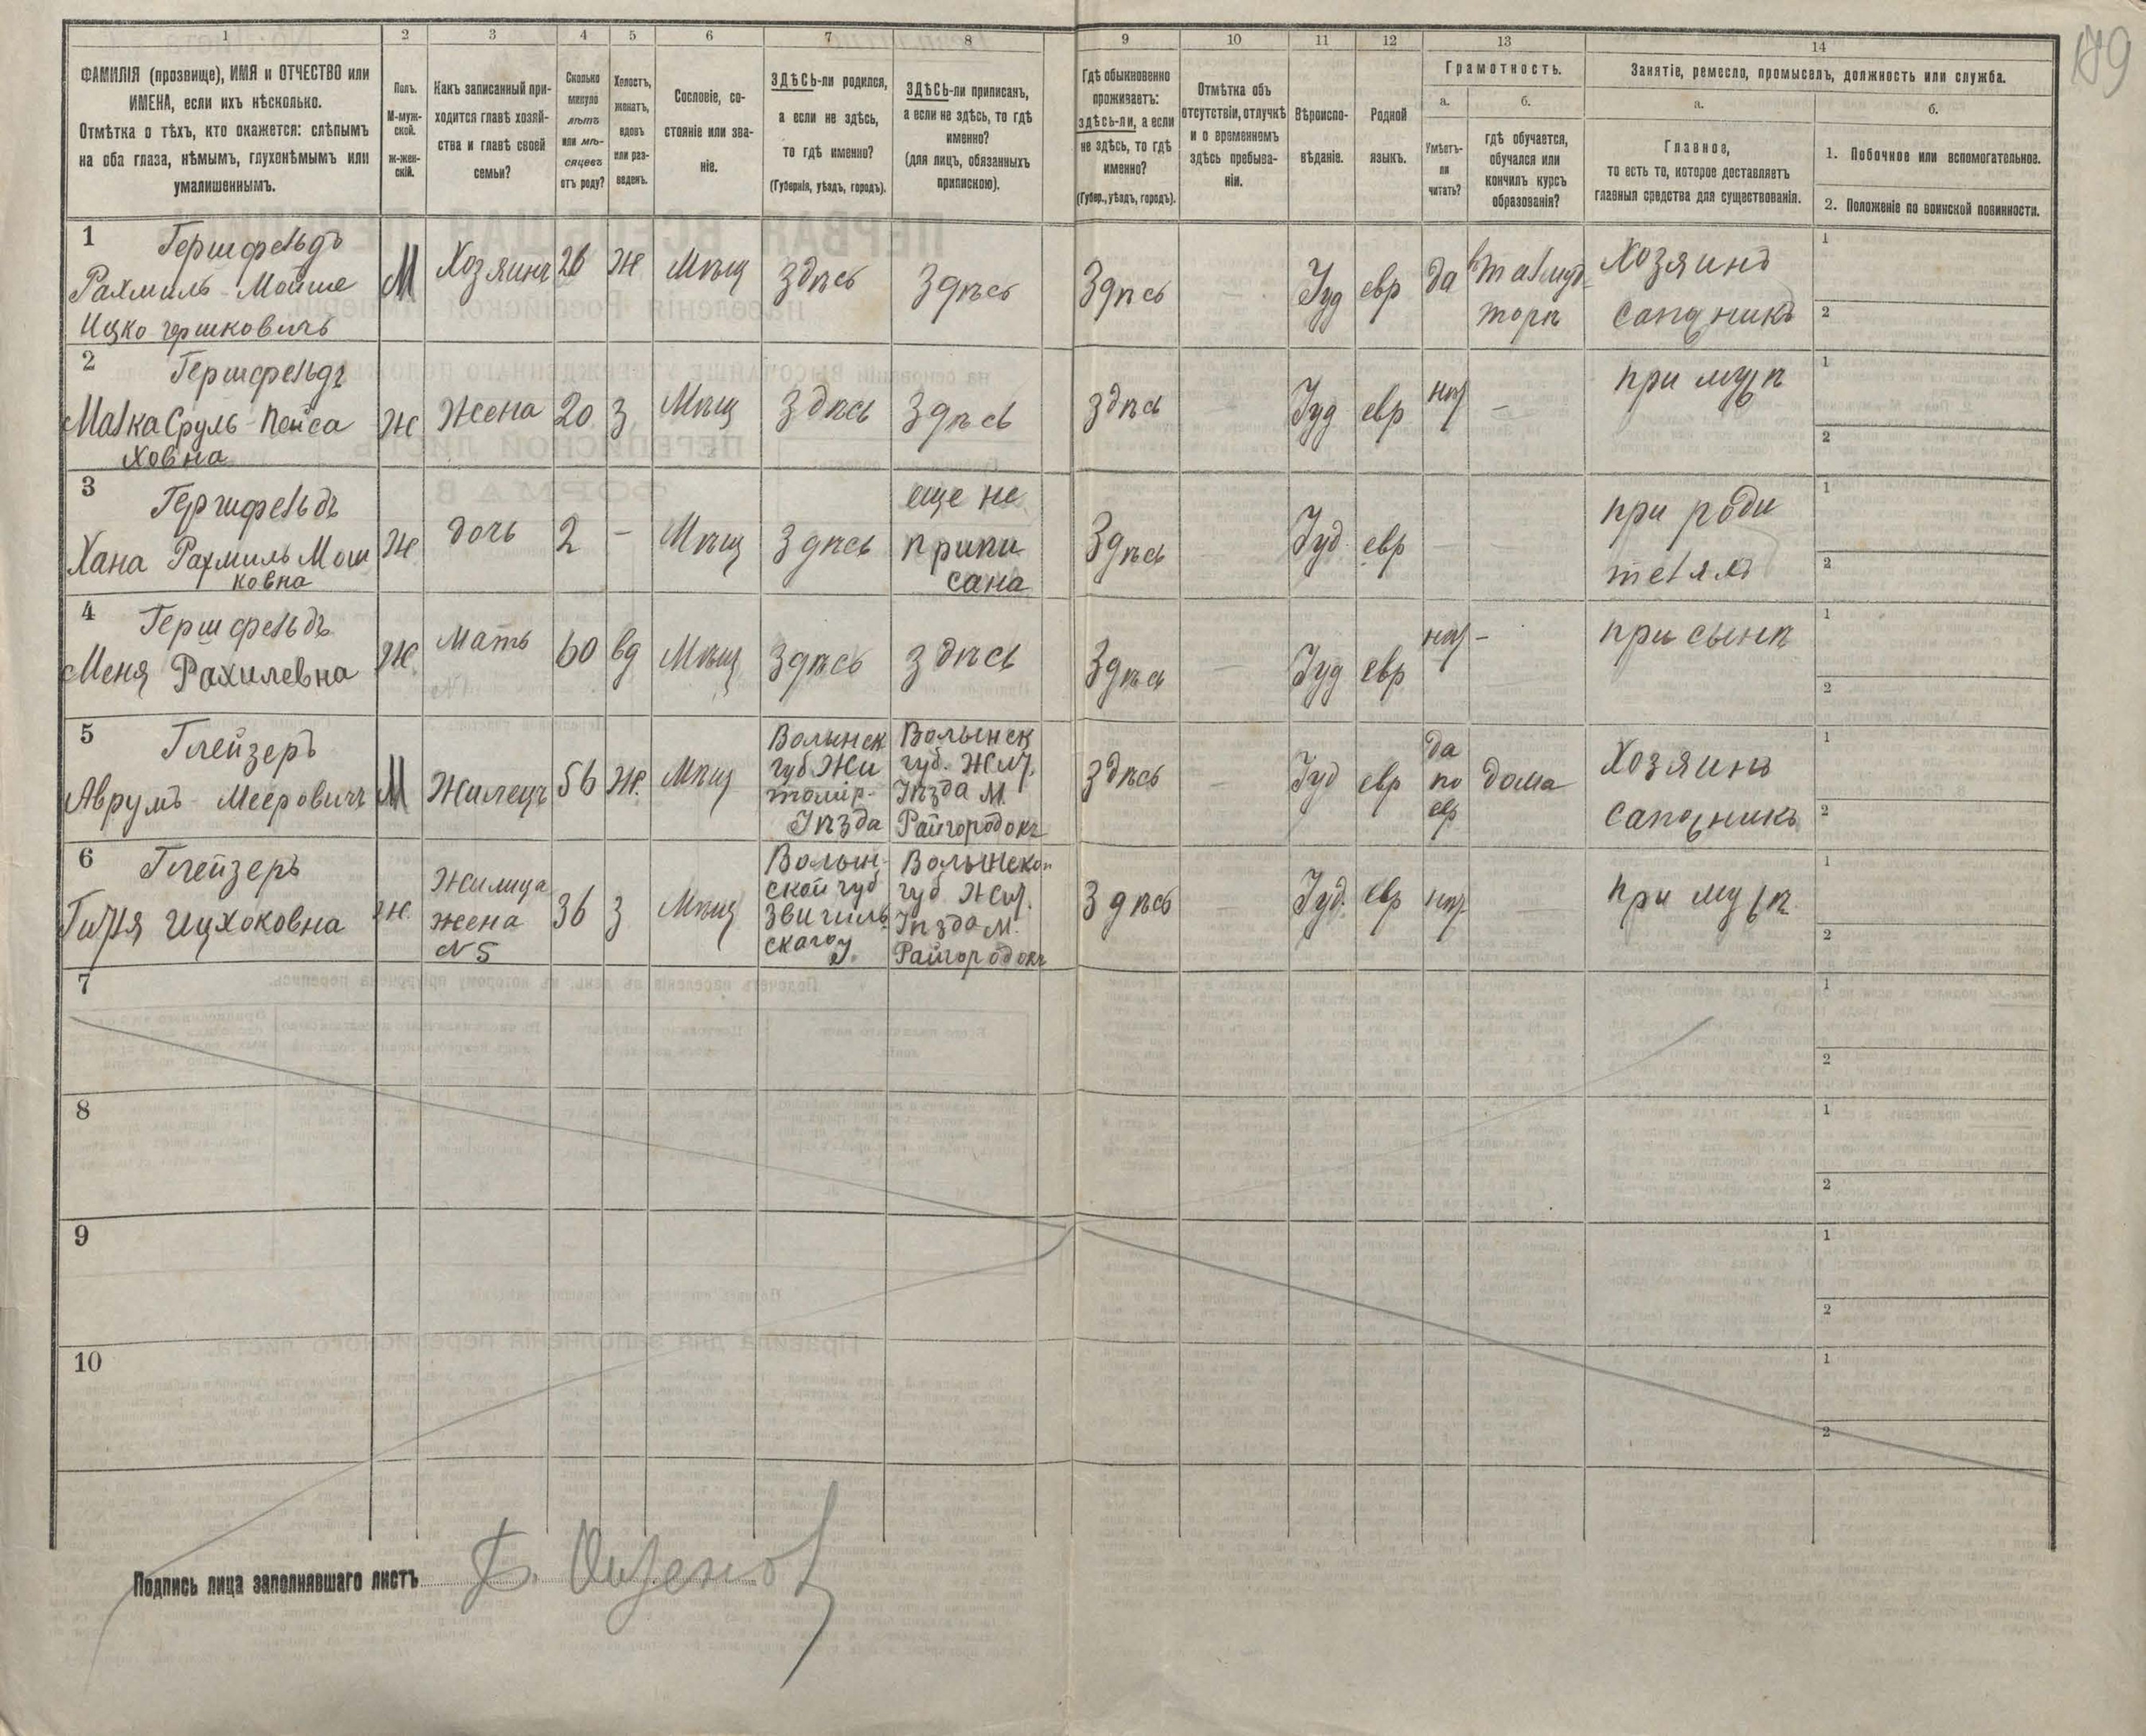 189
1
2
3
4
5
6
7
8
9
10
11
12
13
14
ФАМИЛІЯ (прозвище), ИМЯ и ОТЧЕСТВО или
ИМЕНА, если ихъ нѣсколько.
Отмѣтка о тѣхъ, кто окажется: слѣпымъ
на оба глаза, нѣмымъ, глухонѣмымъ или
умалишеннымъ.
Полъ.
М-муж-
ской.
Ж-жен-
скій.
Какъ записанный при-
ходится главѣ хозяй-
ства и главѣ своей
семьи?
Сколько
минуло
лѣтъ
или мѣ-
сяцевъ
отъ роду?
Холостъ,
женатъ,
вдовъ
или раз-
веденъ.
Сословіе, со-
стояніе или зва-
ніе.
ЗДѢСЬ-ли родился,
а если не здѣсь,
то гдѣ именно?
(Губернія, уѣздъ, городъ).
ЗДѢСЬ-ли приписанъ,
а если не здѣсь, то гдѣ
именно?
(для лицъ, обязанныхъ
припискою).
Гдѣ обыкновенно
проживаетъ:
здѣсь-ли, а если
не здѣсь, то гдѣ
именно?
(Губер., уѣздъ, городъ).
Отмѣтка объ
отсутствіи, отлучкѣ
и о временномъ
здѣсь пребыва-
ніи.
Вѣроиспо-
вѣданіе.
Родной
языкъ.
Грамотность.
а.
б.
Умѣетъ-
ли
читать?
гдѣ обучается,
обучался или
кончилъ курсъ
образованія?
Занятіе, ремесло, промыселъ, должность или служба.
а.
б.
Главное,
то есть то, которое доставляетъ
главныя средства для существованія.
1. Побочное или вспомогательное.
2. Положеніе по воинской повинности.
1
Гершфельдъ
Рахмиль-Мойше
Ицко гершковичъ
М
Хозяинъ
26
Ж
Мѣщ
Здѣсь
Здѣсь
Здѣсь
—
Іуд
евр
да
Талмуд-
торѣ
Хозяинъ
сапожникъ
1
2
2
Гершфельдъ
Малка Сруль-Пейса
ховна
Ж
Жена
20
З
Мѣщ
Здѣсь
Здѣсь
Здѣсь
Іуд
евр
нѣт
—
при мужѣ
1
2
3
Гершфельдъ
Хана Рахмиль Мош
ковна
Ж
дочь
2
—
Мѣщ
Здѣсь
еще не
припи
сана
Здѣсь
Іуд
евр
при роди
теляхъ
1
2
4
Гершфельдъ
Меня Рахилевна
Ж.
Мать
60
вд
Мѣщ
Здѣсь
Здѣсь
Здѣсь
—
Іуд
евр
нѣт
—
при сынѣ
1
2
5
Глейзеръ
Аврумъ-Мееровичъ
М
Жилецъ
56
Ж.
Мѣщ
Волынск
губ. Жи
томир-
Уѣзда
Волынск
губ. Жит.
Уѣзда М.
Райгородокъ
Здѣсь
—
Іуд
евр
да
по
евр
дома
Хозяинъ
сапожникъ
1
2
6
Глейзеръ
Гитля Ицхоковна
Ж.
Жилица
жена
N 5
36
З
Мѣщ
Волын-
ской губ
Звягиль-
скаго у.
Волынской
губ Жит.
Уѣзда М.
Райгородокъ
Здѣсь
—
Іуд.
евр
нѣт.
—
при мужѣ
1
2
7
1
2
8
1
2
9
1
2
10
1
2
Подпись лица заполнявшаго листъ